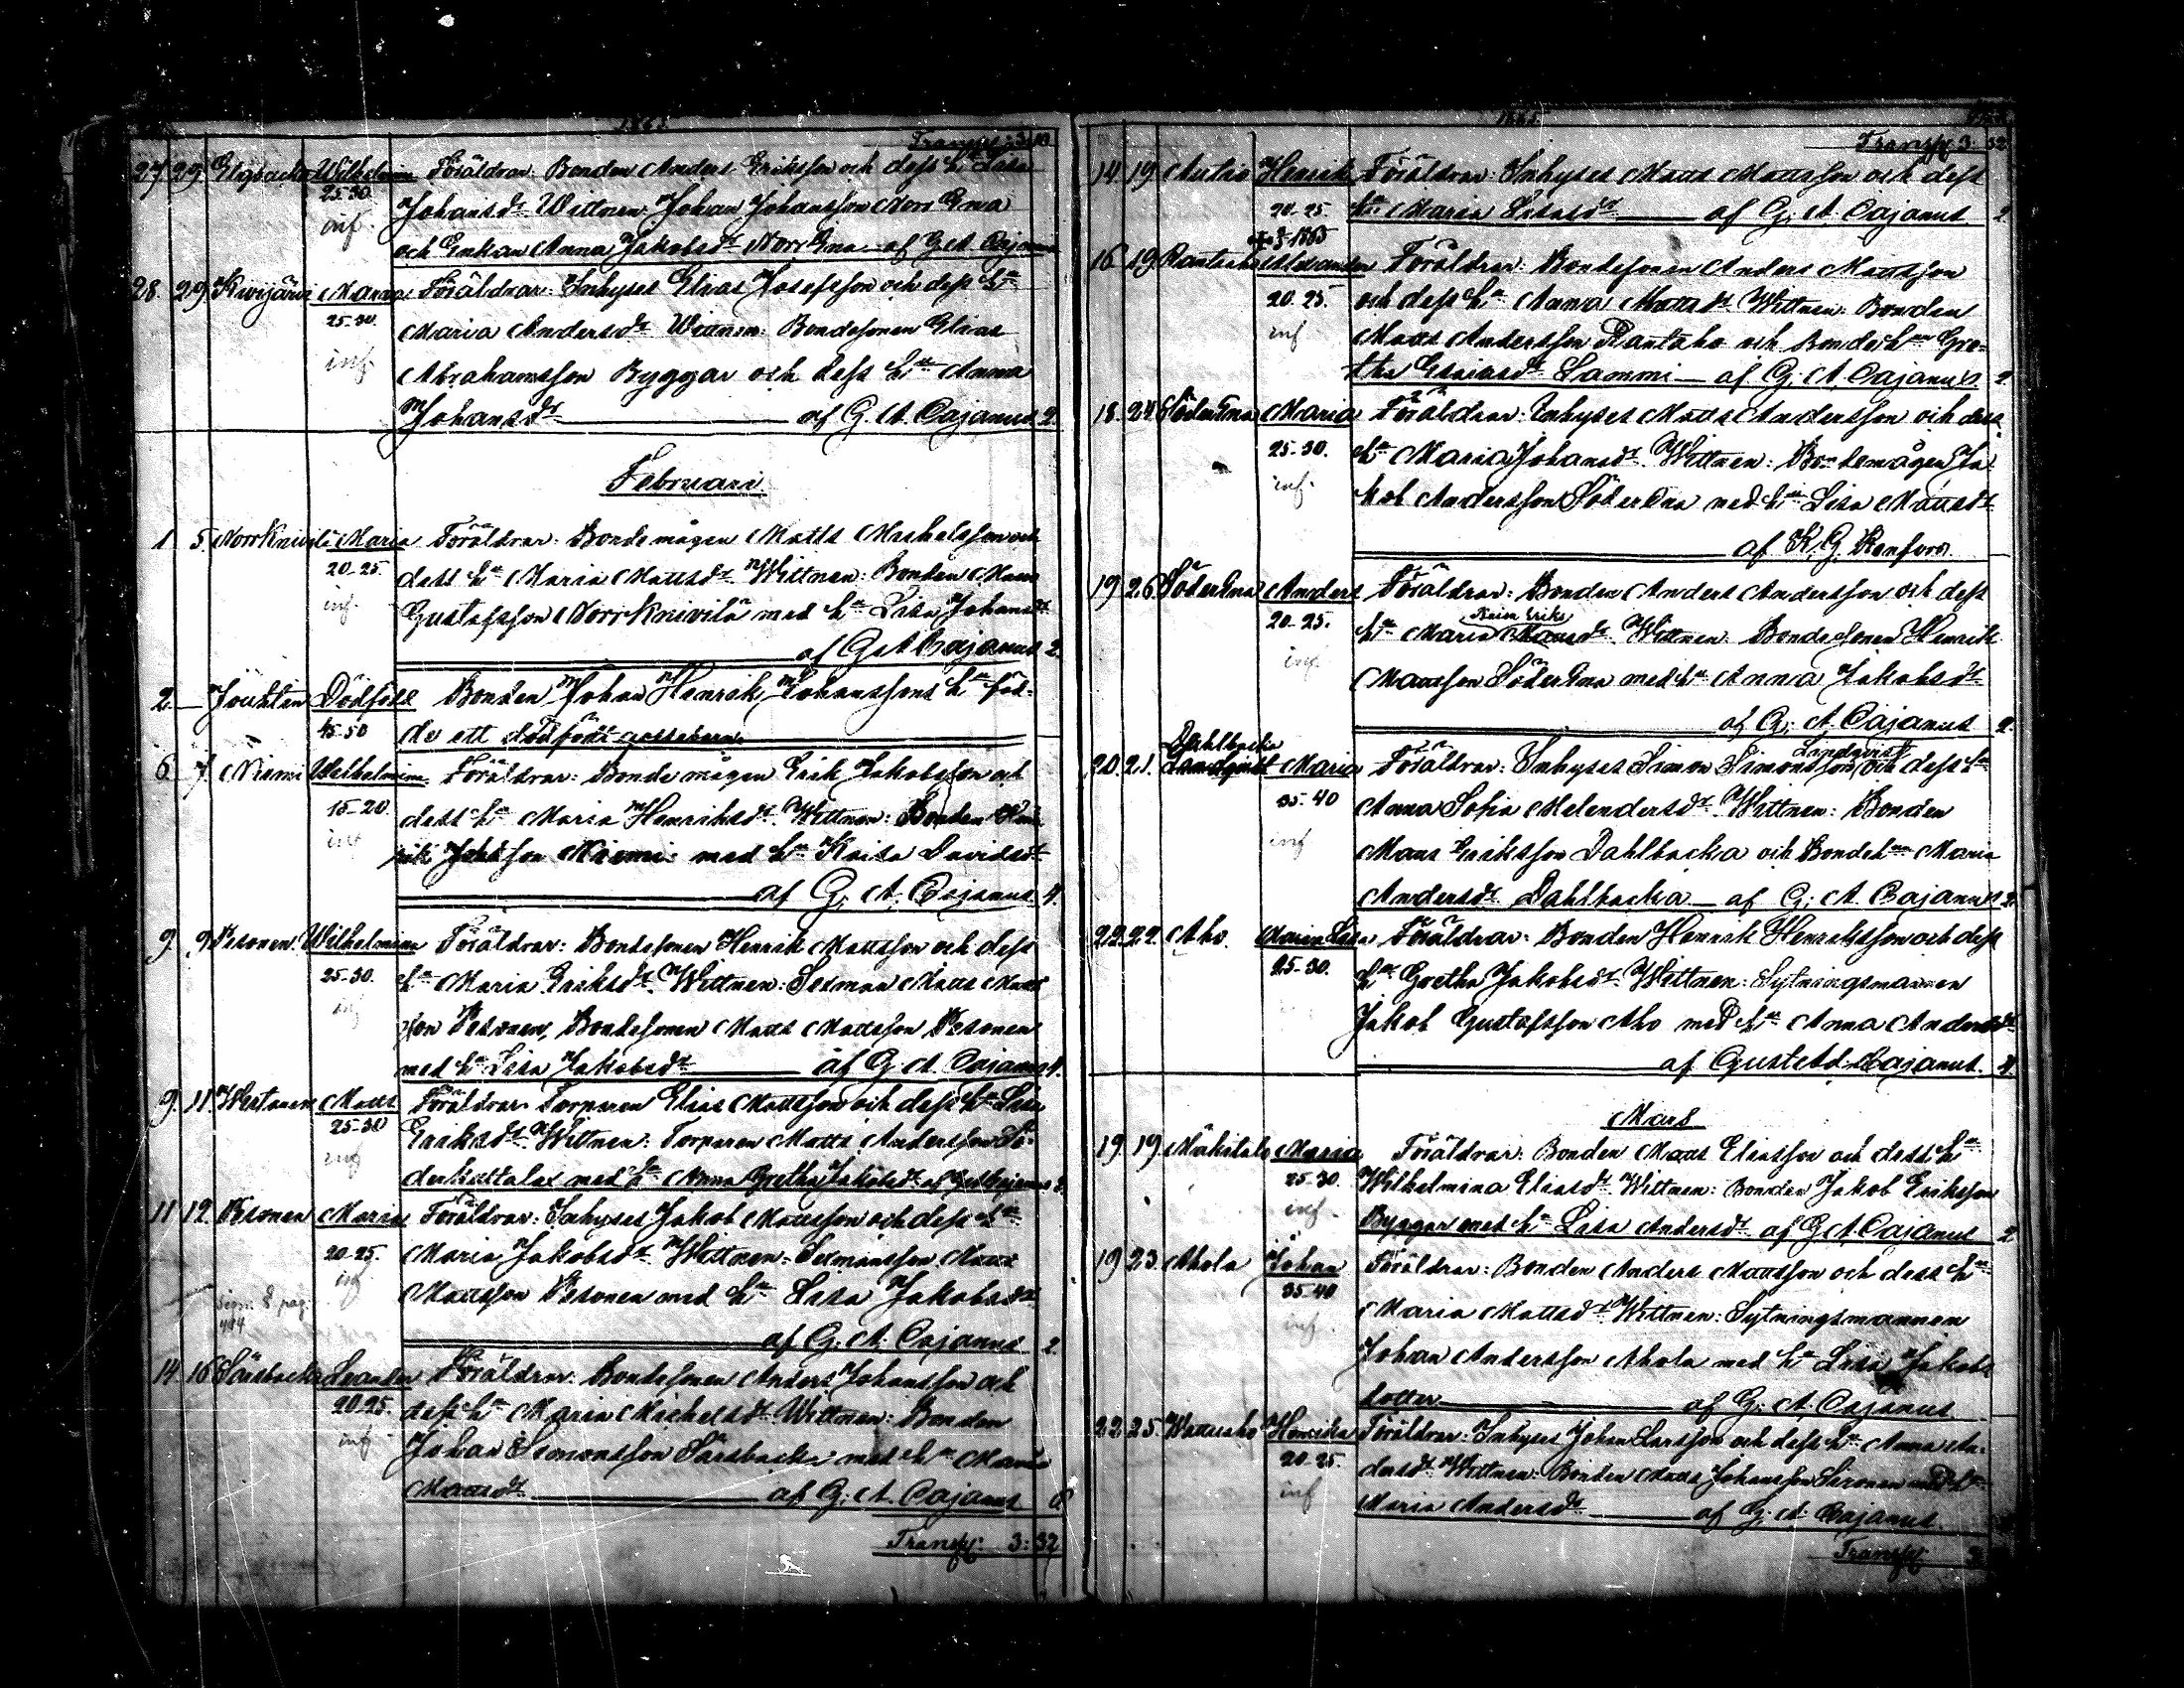 1865
Transp. 3:10
27 29 Wilhelmina Föräldrar: Bonden Anders Eriksson och dess h:u Lisa
25-30 Johansdr Wittnen: Johan Johansson Norr Ena
inf. och Enkan Anna Jakobsdr Norr Ena af G. A. Cajanus
28. 29 Maria Föräldrar: Inhyses Elias Josefsson och dess h:u
25-30. Maria Andersdr Wittnen: Bondesonen Elias
inf. Abrahamsson Byggar och dess h:u Anna
Johansdr af G. A. Cajanus 2.
Februari
1 5 Norr Knivilä Maria Föräldrar: Bondemågen Matts Michelsson och
20-25. dess h:u Maria Mattsdr Wittnen: Bonden Mans
inf. Gustafsson Norr Knivilä med h:u Lisa Johansdr
af G. A. Cajanus 2.
2. — Dödfödt Bonden Johan Henrik Johanssons h:u föd-
45-50 de ett dödfödt gossebarn
6 7 Niemi Wilhelmina Föräldrar: Bondemågen Erik Jakobsson och
15-20. dess h:u Maria Henriksdr Wittnen: Bonden Hen-
inf rik Niemi med h:u Kaisa Davidsdr
af G. A. Cajanus 4.
9. 9 Pesonen Wilhelmina Föräldrar: Bondesonen Henrik Mattsson och dess
25-30. h:u Maria Eriksdr Wittnen: Sexman Matts Matts-
inf son Pesonen, Bondesonen Matts Mattsson Pesonen
med h:u Lisa Jakobsdr af G. A. Cajanus 4.
9. 11 Matts Föräldrar: Torparen Elias Mattsson och dess h:u Lisa
25-30 Eriksdr Wittnen: Torparen Matts Andersson Sö-
inf med h:u Anna Gretha Jakobsdr af Cajanus
11 12 Pesonen Maria Föräldrar: Inhyses Jakob Mattsson och dess h:u
20-25. Maria Jakobsdr Wittnen: Matts
inf. Mattsson Pesonen med h:u Lisa Jakobsdr
af G. A. Cajanus 2.
14 16 Särsbacka Leander Föräldrar: Bondesonen Anders Johansson och
20-25. dess h:u Maria Michelsdr Wittnen: Bonden
inf Johan Simonsson Särsbacka med h:u Maria
Mattsdr af G. A. Cajanus
Transp. 3:32
1865
Transp 3. 32
14 19 Autio Henrik Föräldrar: Inhyses Matts Mattsson och dess
20-25 h:u Maria af G. A. Cajanus 2
16 19 Rautaho Alexander Föräldrar: Bondesonen Anders Mattsson
20-25. och dess h:u Anna Mattsdr Wittnen: Bonden
inf Matts Andersson Rautaho och Bondeh:un Gre-
tha Sammi af G. A. Cajanus 2
18. 24 SöderEna Maria Föräldrar: Inhyses Matts Andersson och dess
25-30. h:u Maria Johansdr. Wittnen: Bondemågen Ja-
inf. kob Andersson SöderEna med h:u Lisa Mattsdr
af K. G. Renfors
19 26 SöderEna Anders Föräldrar: Bonden Anders Andersson och dess
20-25. h:u Maria Wittnen: Bondesonen Henrik
inf. Mattsson SöderEna med h:u Anna Jakobsdr
af G. A. Cajanus 2.
Dahlbacka Landqvist
20. 21. Maria Föräldrar: Inhyses Simon Simonsson och dess h:u
35-40 Anna Sofia Melendersdr Wittnen: Bonden
inf Mans Eriksson Dahlbacka och Bondeh:un Maria
Andersdr Dahlbacka — af G. A. Cajanus 2
22. 22. Aho Maria Lisa Föräldrar: Bonden Henrik Henriksson och dess
25-30. h:u Gretha Jakobsdr Wittnen: Sytningsmannen
Jakob Gustafsson Aho med h:u Anna Andersdr
af Cajanus. 4.
Mars
19 19 Mäkitalo Maria Föräldrar: Bonden Matts Eliasson och dess h:u
25-30. Wilhelmina Eliasdr Wittnen: Bonden Jakob Eriksson
inf. Byggar med h:u Lisa Andersdr af G. A. Cajanus 2
19 23. Ahola Johan Föräldrar: Bonden Anders Mattsson och dess h:u
35-40 Maria Mattsdr Wittnen: Sytningsmannen
inf. Johan Andersson Ahola med h:u Lisa Jakobs
dotter af G. A. Cajanus
22 25. Henrika Föräldrar: Inhyses Johan Larsson och dess h:u Anna An-
20-25. dersdr Wittnen: Bonden Matts Johansson med h:u
inf Maria Andersdr af G. A. Cajanus.
Transp